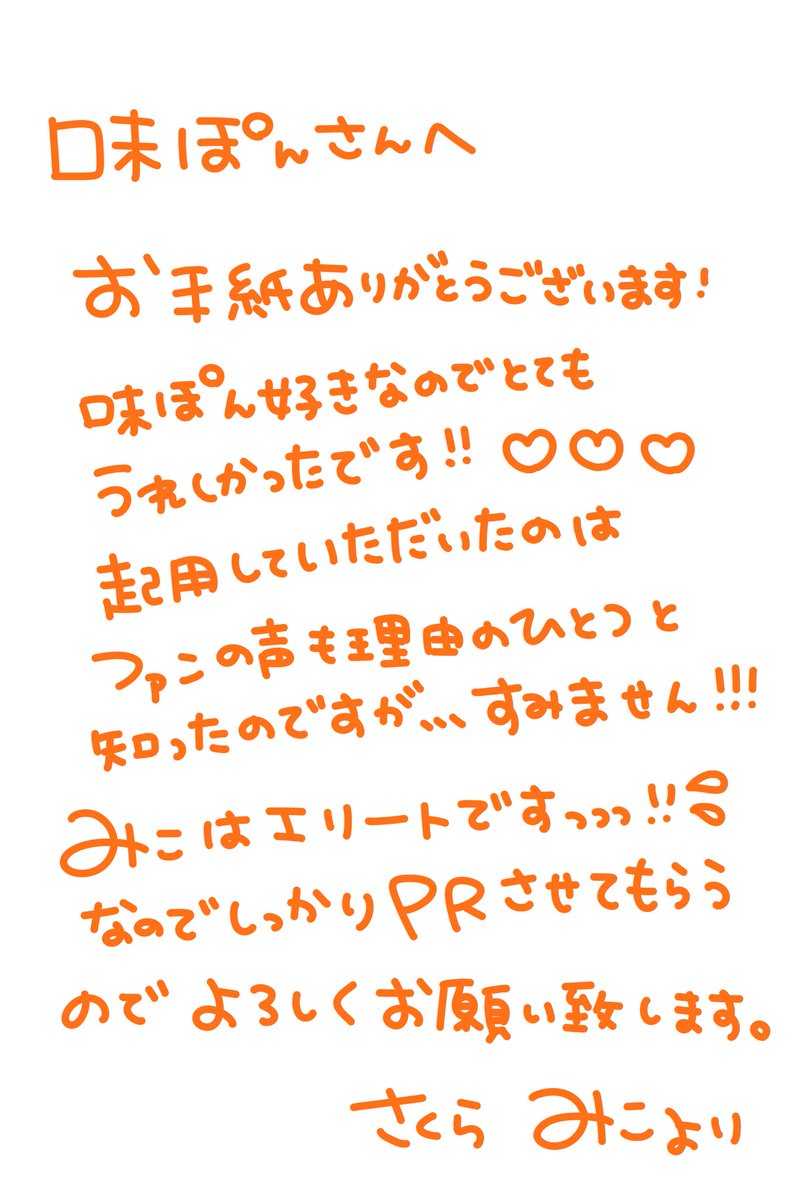 味ぽんさんへ
お手紙ありがとうございます!
味ぽん好きなのでとても
うれしかったです!! ♡♡♡
起用していただいたのは
ファンの声も理由のひとつと
知ったのですが、、、すみません!!!
みこはエリートですっっっ!!
なのでしっかりPRさせてもらう
のでよろしくお願い致します。
さくら みこより